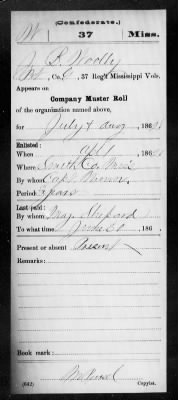 (Confederate.)
W 37 Miss.
J. B. Woolly
Co. , 37 Reg't Mississippi Vols.
Appears on
Company Muster Roll
of the organization named above,
for July & Aug, 186
Enlisted:
When Apl 186
Where Smith Co, Miss
By whom Capt.
Period 3 years
Last paid:
By whom Maj. Shepard
To what time June 30, 186
Present or absent Present
Remarks:
Book mark:
(642) Copyist.